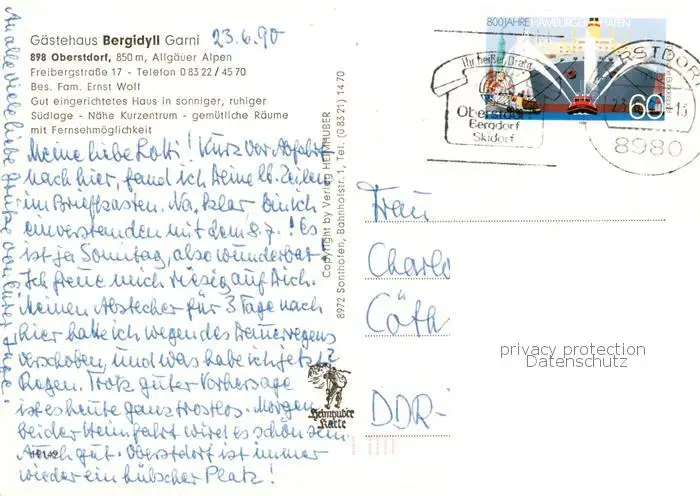 Gästehaus Bergidyll Garni
23.6.90
898 Oberstdorf, 850 m, Allgäuer Alpen
Freibergstraße 17 - Telefon 0 83 22 / 45 70
Bes. Fam. Ernst Wolf
Gut eingerichtetes Haus in sonniger, ruhiger
Südlage - Nähe Kurzentrum - gemütliche Räume
mit Fernsehmöglichkeit
Meine liebe Lotti! Kurz vor Abfahrt
nach hier, fand ich Deine lb. Zeilen
im Briefkasten. Na, klar, bin ich
einverstanden mit dem 8.7.! Es
ist ja Sonntag, also wunderbar!
Ich freue mich riesig auf Dich.
Meinen Abstecher für 3 Tage nach
hier hatte ich wegen des Dauerregens
verschoben, und was habe ich jetzt?
Regen. Trotz guter Vorhersage
ist es heute ganz trostlos. Morgen
bei der Heimfahrt wird es schön sein.
Auch gut. Oberstdorf ist immer
wieder ein hübscher Platz!
An alle viele liebe Grüße von
Copyright by Verlag HEIMHUBER
8972 Sonthofen, Bahnhofstr. 1, Tel. (0 83 21) 14 70
Heimhuber
Karte
800 JAHRE HAMBURGER HAFEN
60
Ihr heißer Draht
Oberstdorf
Bergdorf
Skidorf
8980
Frau
Charlo
Cöth
DDR-
privacy protection
Datenschutz